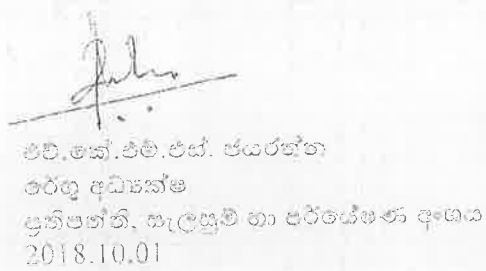 එච්.කේ.එම්.එස්. ජයරත්න
රේගු අධ්‍යක්ෂ
ප්‍රතිපත්ති, සැලසුම් හා පර්යේෂණ අංශය
2018.10.01